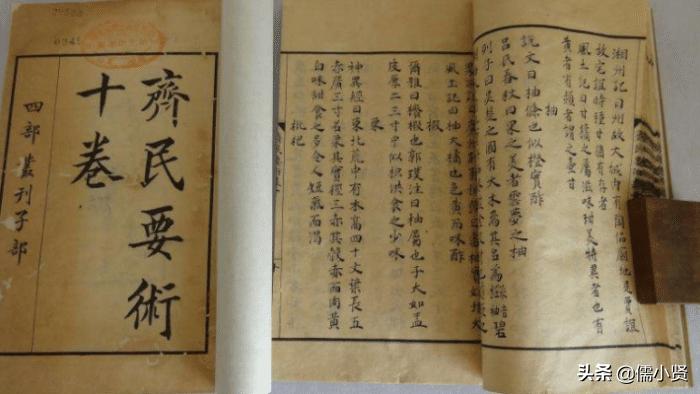 齊民要術
十卷
四部叢刊子部
湘州記曰州故大城內有陶侃廟地是賈誼
故宅誼時種甘猶有存者
風土記曰甘橘之屬滋味甜美特異者也有
黃者有赬者謂之壺甘
柚
說文曰柚條也似橙實酢
呂氏春秋曰果之美者雲夢之柚
列子曰吳楚之國有大木焉其名為櫾音柚碧
風土記曰柚大橘也色黃而味酢
椵
爾雅曰櫠椵也郭璞注曰柚屬也子大如盂
皮厚二三寸中似枳洪食之少味
栗
神異經曰東北荒中有木高四十丈葉長五
赤廣三寸名栗其實徑三赤其殼赤而肉黃
白味甜食之多令人短氣而渴
枇杷
头条 @儒小贤